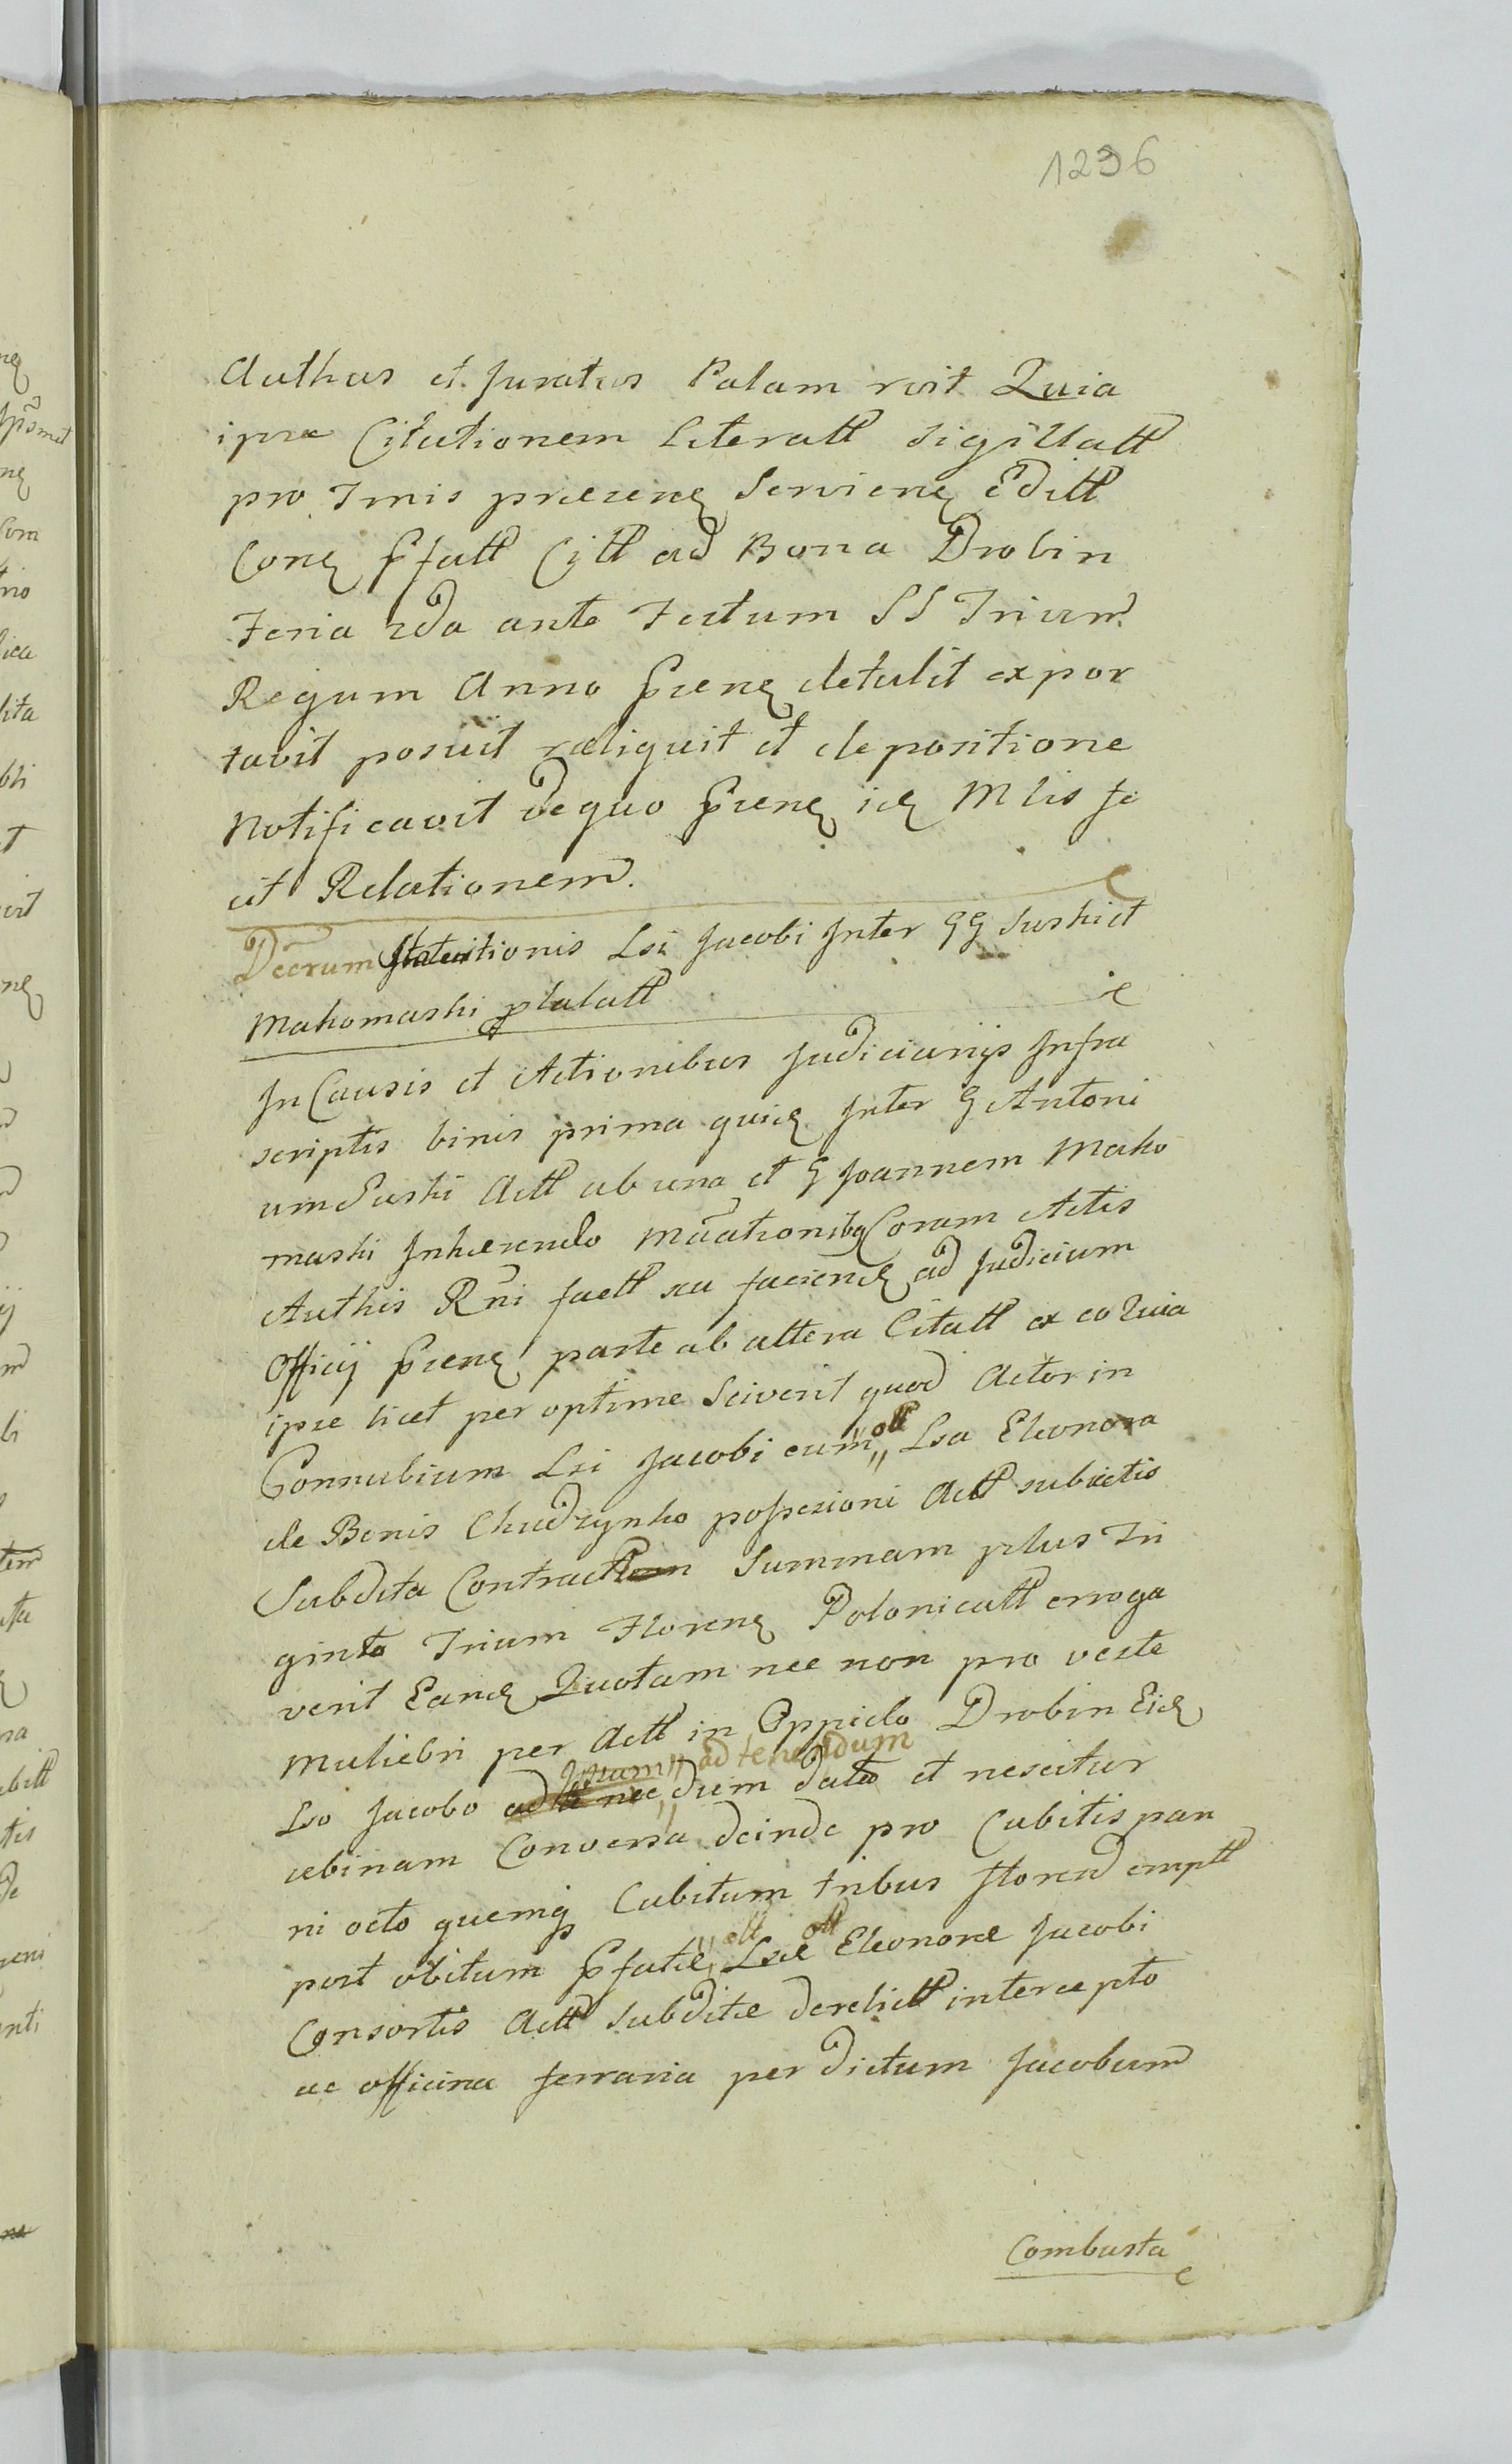 1296
Authus et Juratus Palam rvit Quia
ipse Citationem Literatt sigillatt
pro Tmis præsens Serviens Editt
Cong Pfatt Citt ad Bona Drobin
Feria 2da ante Festum SS Trium
Regum Anno Præsens detulit expor
tavit posuit reliquit et depositione
Notificavit de quo Præsens ids Mlis fe
cit Relationem.
Decrum Statuitionis Lsi Jacobi Inter GG Suski et
Makomaski platatt
In Causis et Actionibus Judiciariis Infra
scriptis binis prima quids Inter G Antoni
um Suski Actt ab una et G Joannem Mako
maski Inhærendo Mãationibq Coram Actis
Authis Rni factt seu faciends ad Judicium
Officij Præsens parte ab altera Citatt ex eo Quia
ipse licet per optime Sciverit quod Actor in
Connubium Lsi Jacobi cum olt Lsa Eleonora
de Bonis Chudzynko possesioni Actt subiectis
Subdita Contractt Summam plus Tri
ginta Trium Florens Polonicatt erroga
verit Eands Quotam nec non pro veste
Muliebri per Actt in Oppido Drobin Eids
Ipsam ad tenendum
Lso Jacobo dum data et nescitur
ubinam Conversa deinde pro Cubitis pan
ni octo quemq Cubitum tribus florens emptt
olt olt
post obitum Pfatæ Lsæ Eleonoræ Jacobi
Consortis Actt Subditæ derelictt intercepto
ac officina ferraria per dictum Jacobum
Combusta